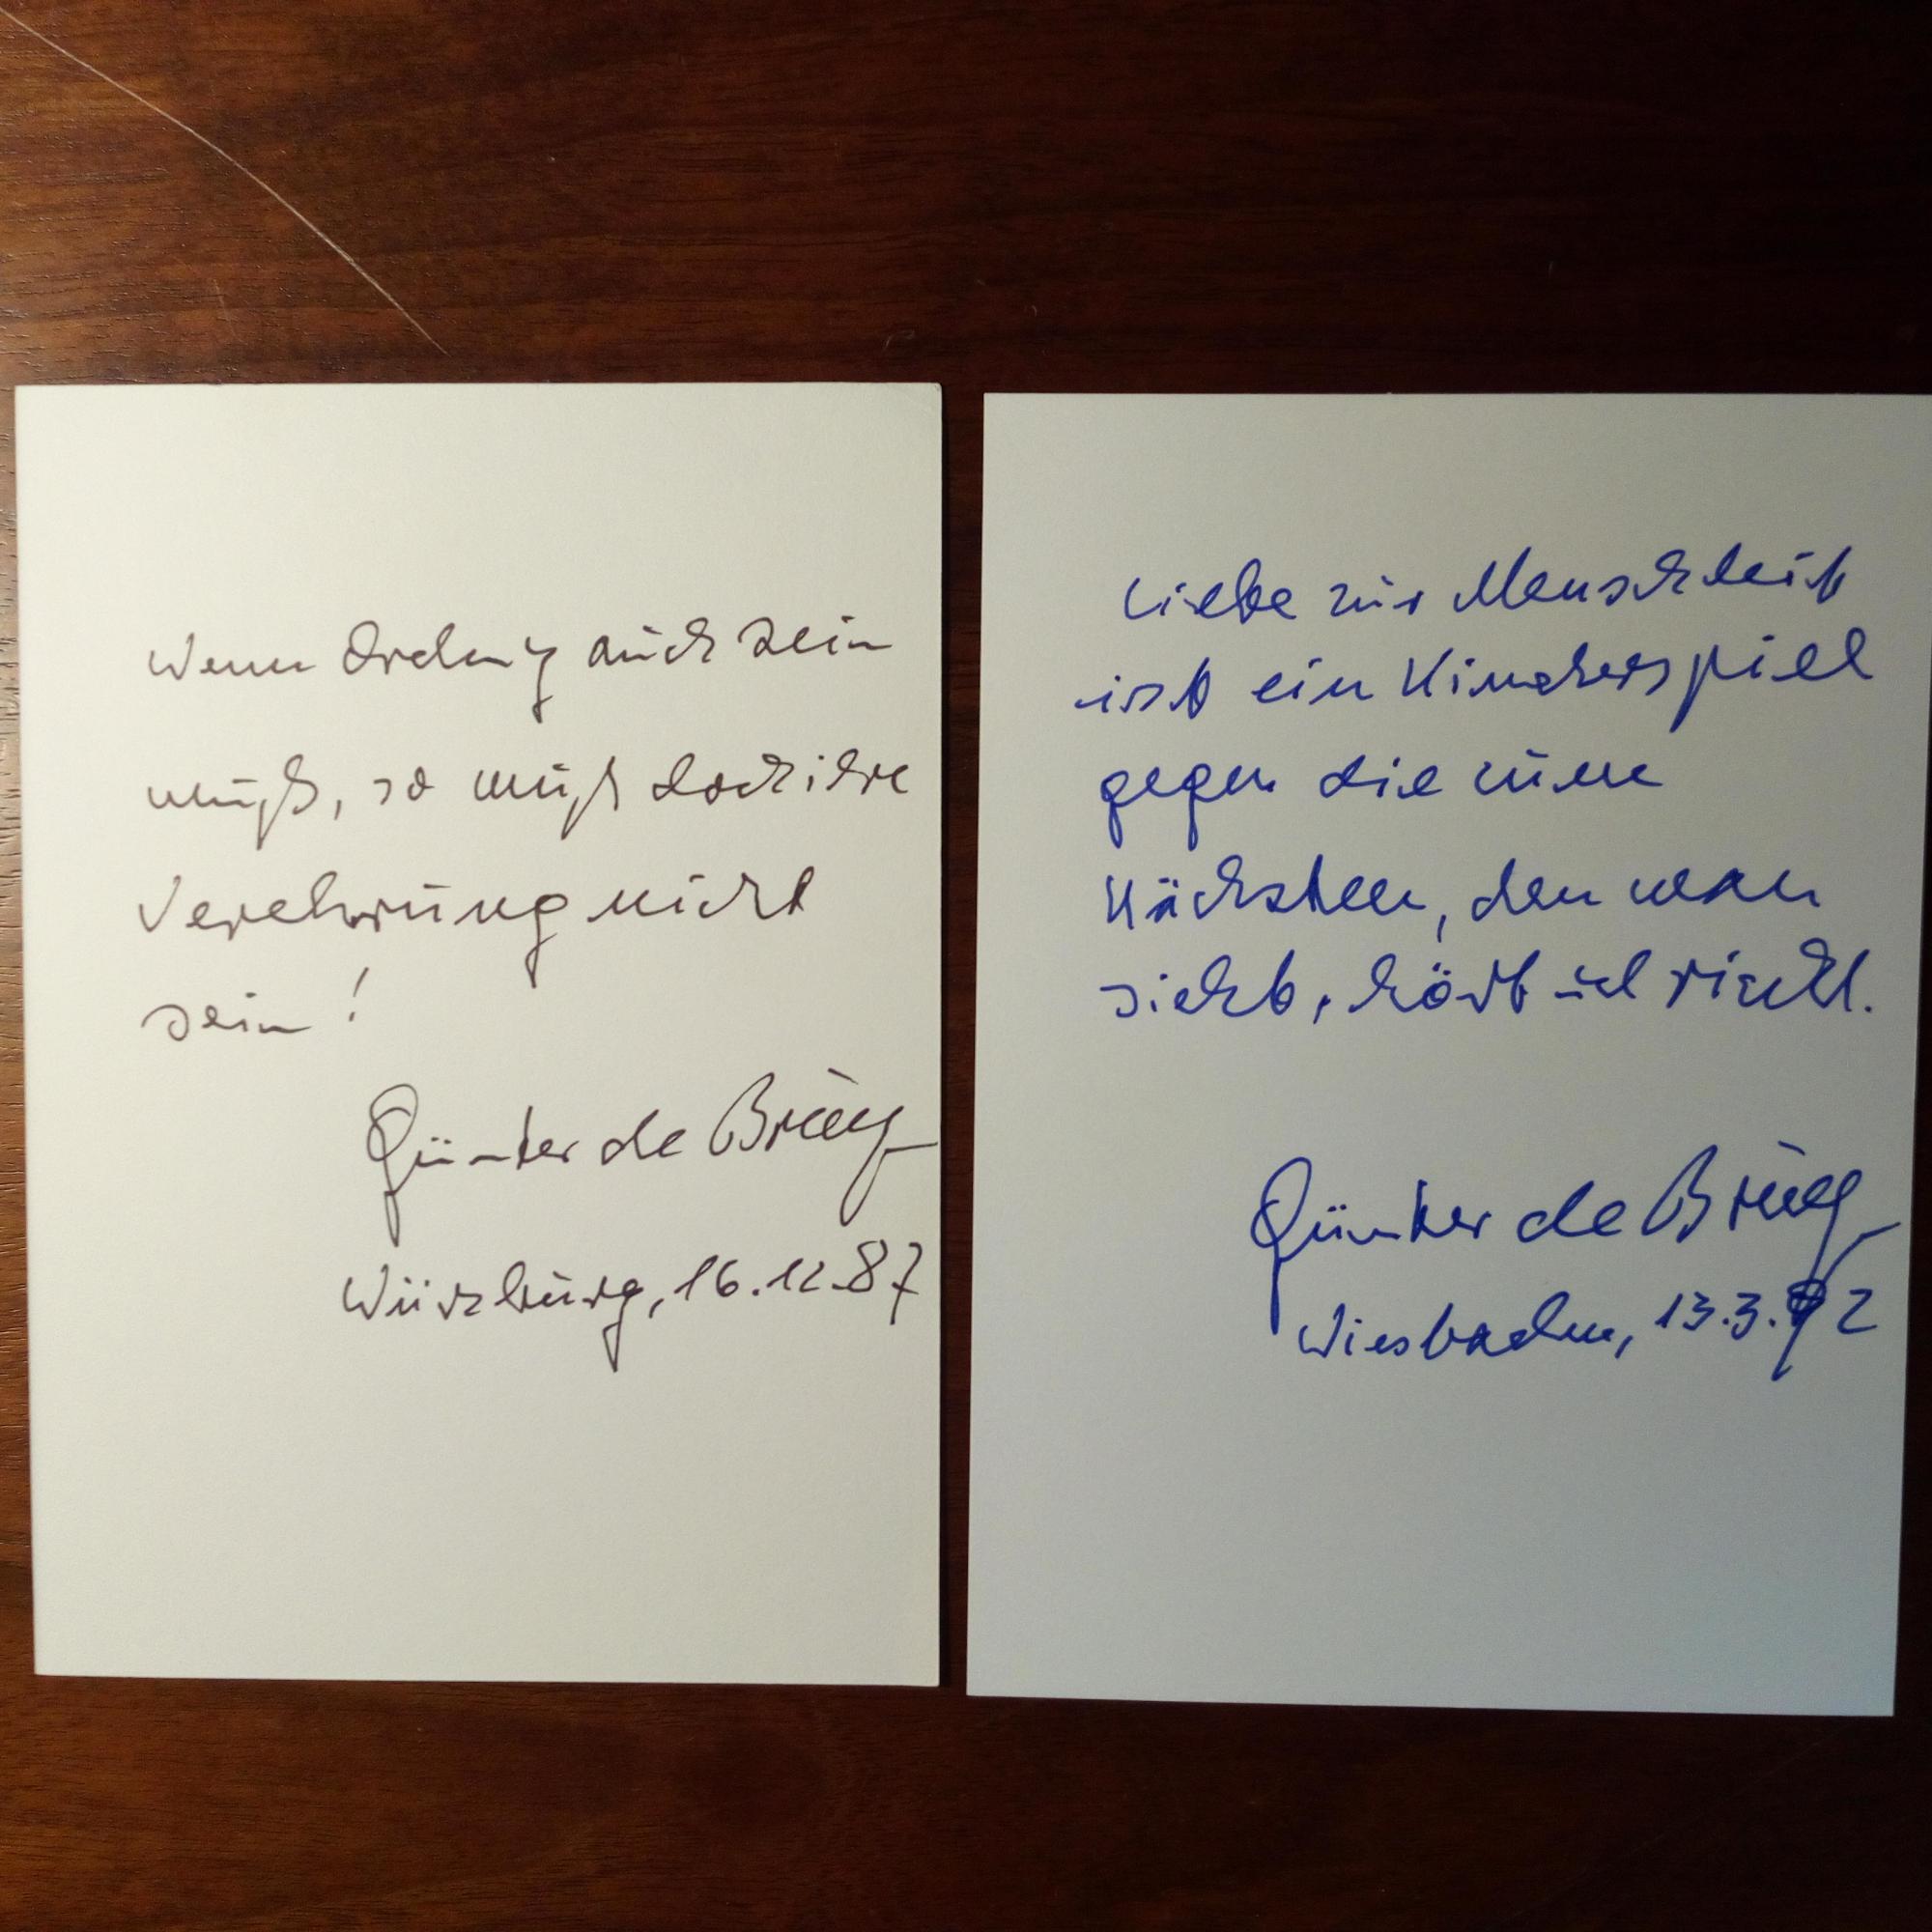 Wenn Ordnung auch sein
muß, so muß doch ihre
Verehrung nicht
sein!
Günter de Bruyn
Würzburg, 16.12.87
Liebe zur Menschheit
ist ein Kinderspiel
gegen die zum
Nächsten, den man
sieht, hört und riecht.
Günter de Bruyn
Wiesbaden, 13.3.92